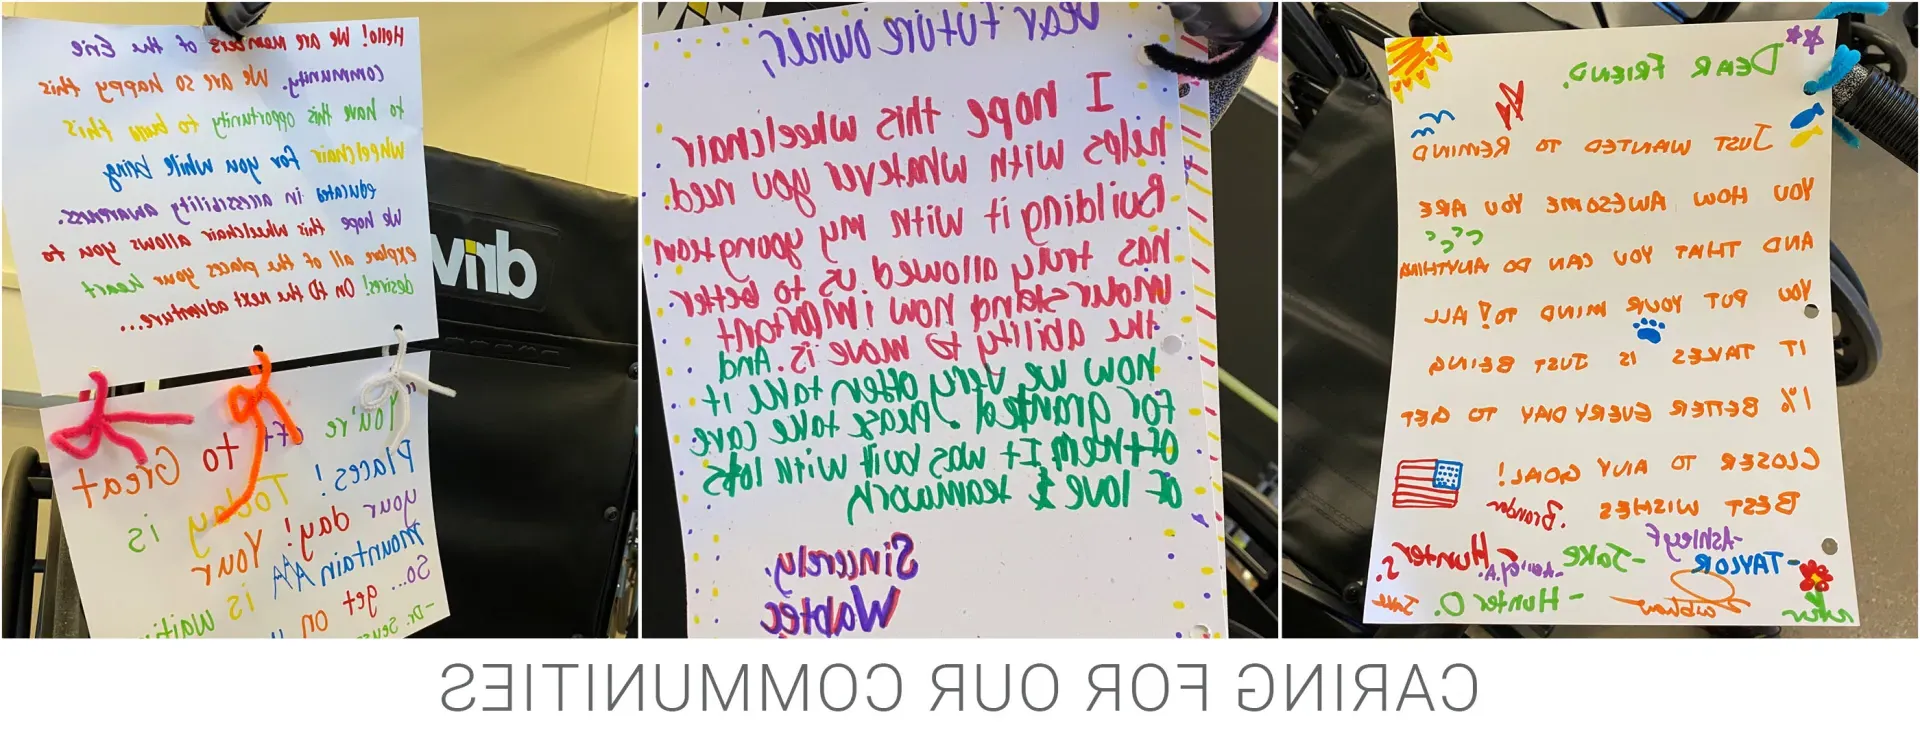 DEAR FRIEND,
JUST WANTED TO REMIND
YOU HOW AWESOME YOU ARE
AND THAT YOU CAN DO ANYTHING
YOU PUT YOUR MIND TO! ALL
IT TAKES IS JUST BEING
1% BETTER EVERY DAY TO GET
CLOSER TO ANY GOAL!
BEST WISHES
Brandon.
-Ashley F
-TAYLOR
-Jake
Hunter S.
-Hunter O.
Jake
Dear Future owner,
I hope this wheelchair
helps with whatever you need.
Building it with my young team
has truly allowed us to better
understand how important
the ability to move is. And
how we very often take it
for granted. Please take care
of them It was built with lots
of love & teamwork
Sincerely,
Wabtec
Hello! We are members of the Erie
community. We are so happy this
to have this opportunity to build this
wheelchair for you while being
educated in accessibility awareness.
We hope this wheelchair allows you to
explore all of the places your heart
desires! On to the next adventure...
"You're off to Great
Places! Today is
your day! Your
mountain is waiti
So... get on
-Dr. Seuss
driv
CARING FOR OUR COMMUNITIES